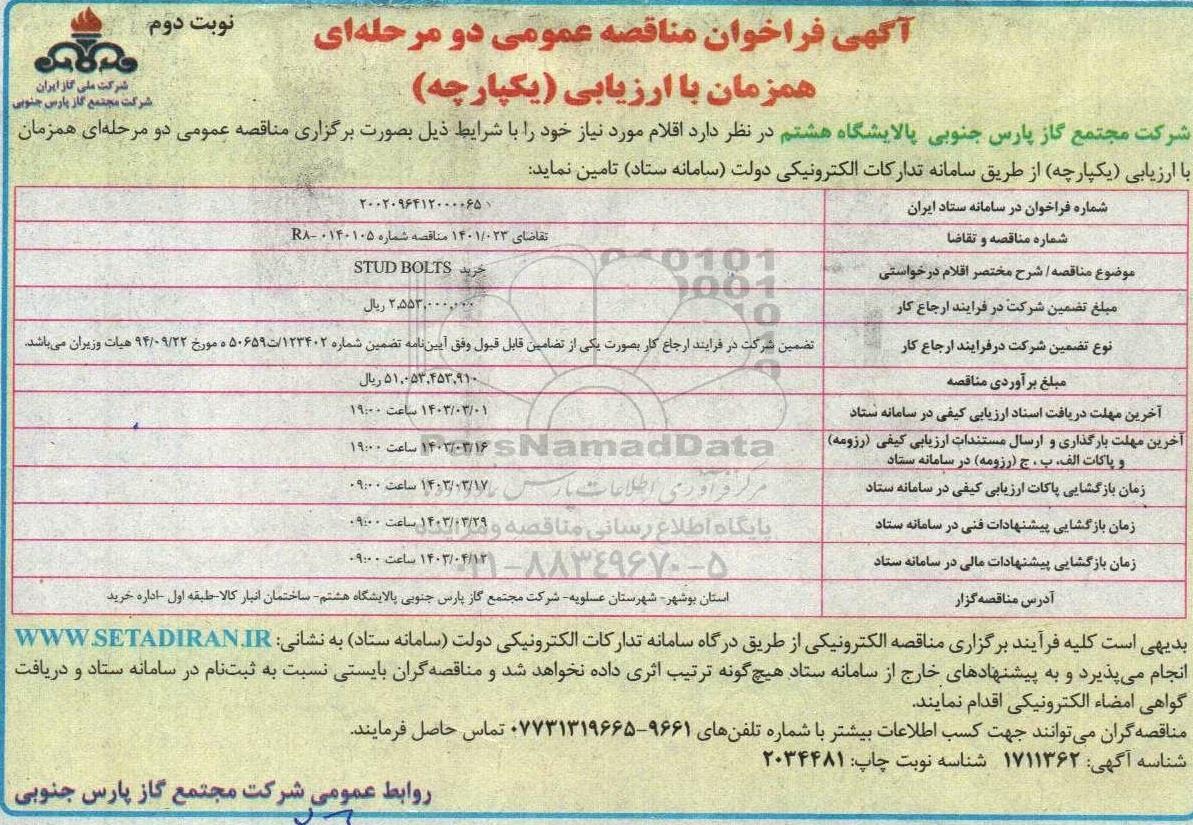 نوبت دوم
آگهی فراخوان مناقصه عمومی دو مرحله‌ای
همزمان با ارزیابی (یکپارچه)
شرکت ملی گاز ایران
شرکت مجتمع گاز پارس جنوبی
شرکت مجتمع گاز پارس جنوبی پالایشگاه هشتم در نظر دارد اقلام مورد نیاز خود را با شرایط ذیل بصورت برگزاری مناقصه عمومی دو مرحله‌ای همزمان
با ارزیابی (یکپارچه) از طریق سامانه تدارکات الکترونیکی دولت (سامانه ستاد) تامین نماید:
شماره فراخوان در سامانه ستاد ایران ۲۰۰۲۰۹۶۴۱۲۰۰۰۰۶۵
شماره مناقصه و تقاضا تقاضای ۱۴۰۱/۰۲۳ مناقصه شماره R۸-۰۱۴۰۱۰۵
موضوع مناقصه/ شرح مختصر اقلام درخواستی خرید STUD BOLTS
مبلغ تضمین شرکت در فرایند ارجاع کار ۲,۵۵۳,۰۰۰,۰۰۰ ریال
نوع تضمین شرکت درفرایند ارجاع کار تضمین شرکت در فرایند ارجاع کار بصورت یکی از تضامین قابل قبول وفق آیین‌نامه تضمین شماره ۱۲۳۴۰۲/ت۵۰۶۵۹ ه مورخ ۹۴/۰۹/۲۲ هیات وزیران می‌باشد.
مبلغ برآوردی مناقصه ۵۱,۰۵۳,۴۵۳,۹۱۰ ریال
آخرین مهلت دریافت اسناد ارزیابی کیفی در سامانه ستاد ۱۴۰۳/۰۳/۰۱ ساعت ۱۹:۰۰
آخرین مهلت بارگذاری و ارسال مستندات ارزیابی کیفی (رزومه)
و پاکات الف، ب ، ج (رزومه) در سامانه ستاد ۱۴۰۳/۰۳/۱۶ ساعت ۱۹:۰۰
زمان بازگشایی پاکات ارزیابی کیفی در سامانه ستاد ۱۴۰۳/۰۳/۱۷ ساعت ۰۹:۰۰
زمان بازگشایی پیشنهادات فنی در سامانه ستاد ۱۴۰۳/۰۳/۲۹ ساعت ۰۹:۰۰
زمان بازگشایی پیشنهادات مالی در سامانه ستاد ۱۴۰۳/۰۴/۱۲ ساعت ۰۹:۰۰
آدرس مناقصه‌گزار استان بوشهر- شهرستان عسلویه- شرکت مجتمع گاز پارس جنوبی پالایشگاه هشتم- ساختمان انبار کالا-طبقه اول -اداره خرید
ParsNamadData
مرکز فرآوری اطلاعات پارس نماد داده‌ها
پایگاه اطلاع رسانی مناقصه و مزایده
۰۲۱-۸۸۳۴۹۶۷۰-۵
بدیهی است کلیه فرآیند برگزاری مناقصه الکترونیکی از طریق درگاه سامانه تدارکات الکترونیکی دولت (سامانه ستاد) به نشانی: WWW.SETADIRAN.IR
انجام می‌پذیرد و به پیشنهادهای خارج از سامانه ستاد هیچ‌گونه ترتیب اثری داده نخواهد شد و مناقصه‌گران بایستی نسبت به ثبت‌نام در سامانه ستاد و دریافت
گواهی امضاء الکترونیکی اقدام نمایند.
مناقصه‌گران می‌توانند جهت کسب اطلاعات بیشتر با شماره تلفن‌های ۹۶۶۱-۰۷۷۳۱۳۱۹۶۶۵ تماس حاصل فرمایند.
شناسه آگهی: ۱۷۱۱۳۶۲ شناسه نوبت چاپ: ۲۰۳۴۴۸۱
روابط عمومی شرکت مجتمع گاز پارس جنوبی